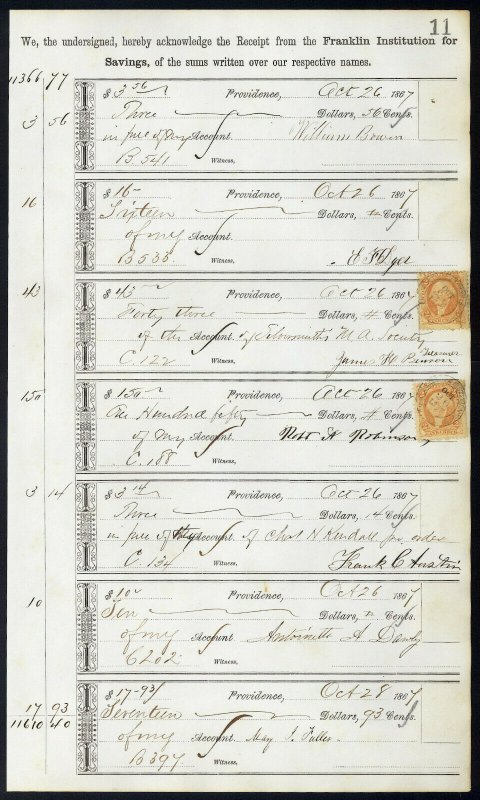 11
We, the undersigned, hereby acknowledge the Receipt from the Franklin Institution for
Savings, of the sums written over our respective names.
11366 77
$ 3 56 Providence, Oct 26 1867
3 56
Three Dollars, 56 Cents.
in full of my Account. William Bowen
B 541 Witness,
$ 16 Providence, Oct 26 1867
16
Sixteen Dollars, Cents.
of my Account.
B 535 Witness, E F Dyer
$ 43 Providence, Oct 26 1867
43
Forty three Dollars, Cents.
of the Account. of M. A. Society
C. 122 Witness, James H. Treasurer
$ 150 Providence, Oct 26 1867
150
One Hundred fifty Dollars, Cents.
of my Account. Robt A Robinson
C. 188 Witness,
$ 3 14 Providence, Oct 26 1867
3 14
Three Dollars, 14 Cents.
in full of Account. of Chas N Kendall order
C. 134 Witness, Frank C Austin
$ 10 Providence, Oct 26 1867
10
Ten Dollars, Cents.
of my Account. Antoinette A
6202 Witness,
$ 17-93 Providence, Oct 28 1867
17 93
Seventeen Dollars, 93 Cents.
11610 40
of my Account. May J. Fuller
B 397 Witness,